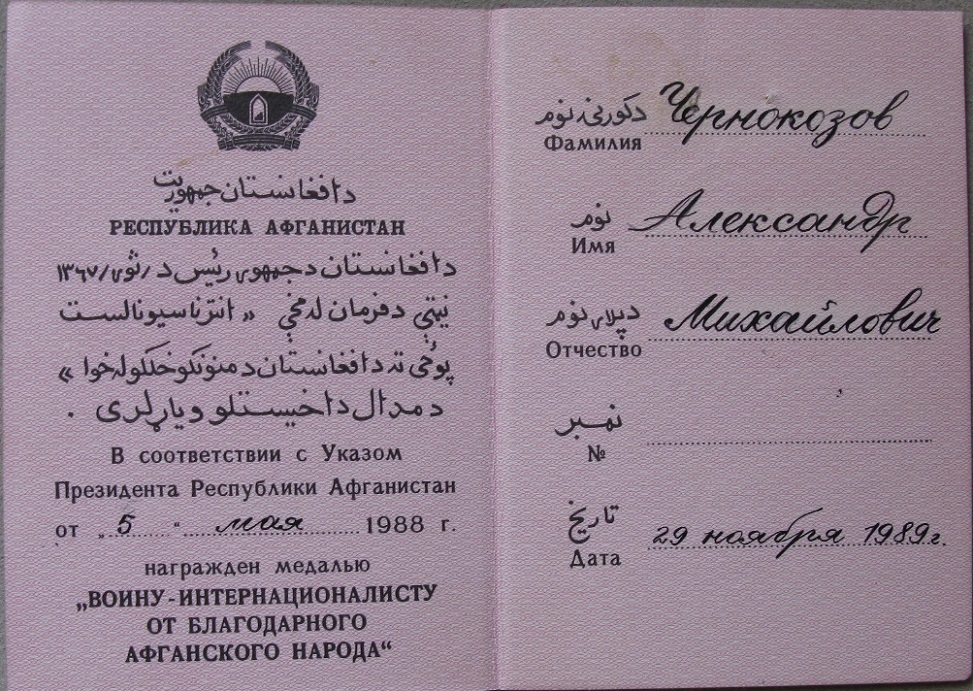 د افغانستان جمهوریت
РЕСПУБЛИКА АФГАНИСТАН
د افغانستان د جمهوری رئیس د / ثور / ۱۳۶۷
نیټې د فرمان له مخې «انترناسیونالست
پوځي ته د افغانستان د منونکو خلکو له خوا»
د مدال د اخیستلو ویاړ لری .
В соответствии с Указом
Президента Республики Афганистан
от „ 5 “ мая 1988 г.
награжден медалью
„ВОИНУ-ИНТЕРНАЦИОНАЛИСТУ
ОТ БЛАГОДАРНОГО
АФГАНСКОГО НАРОДА“
د کورنۍ نوم Чернокозов
Фамилия
نوم Александр
Имя
د پلار نوم Михайлович
Отчество
نمبر
№
تاریخ 29 ноября 1989г.
Дата